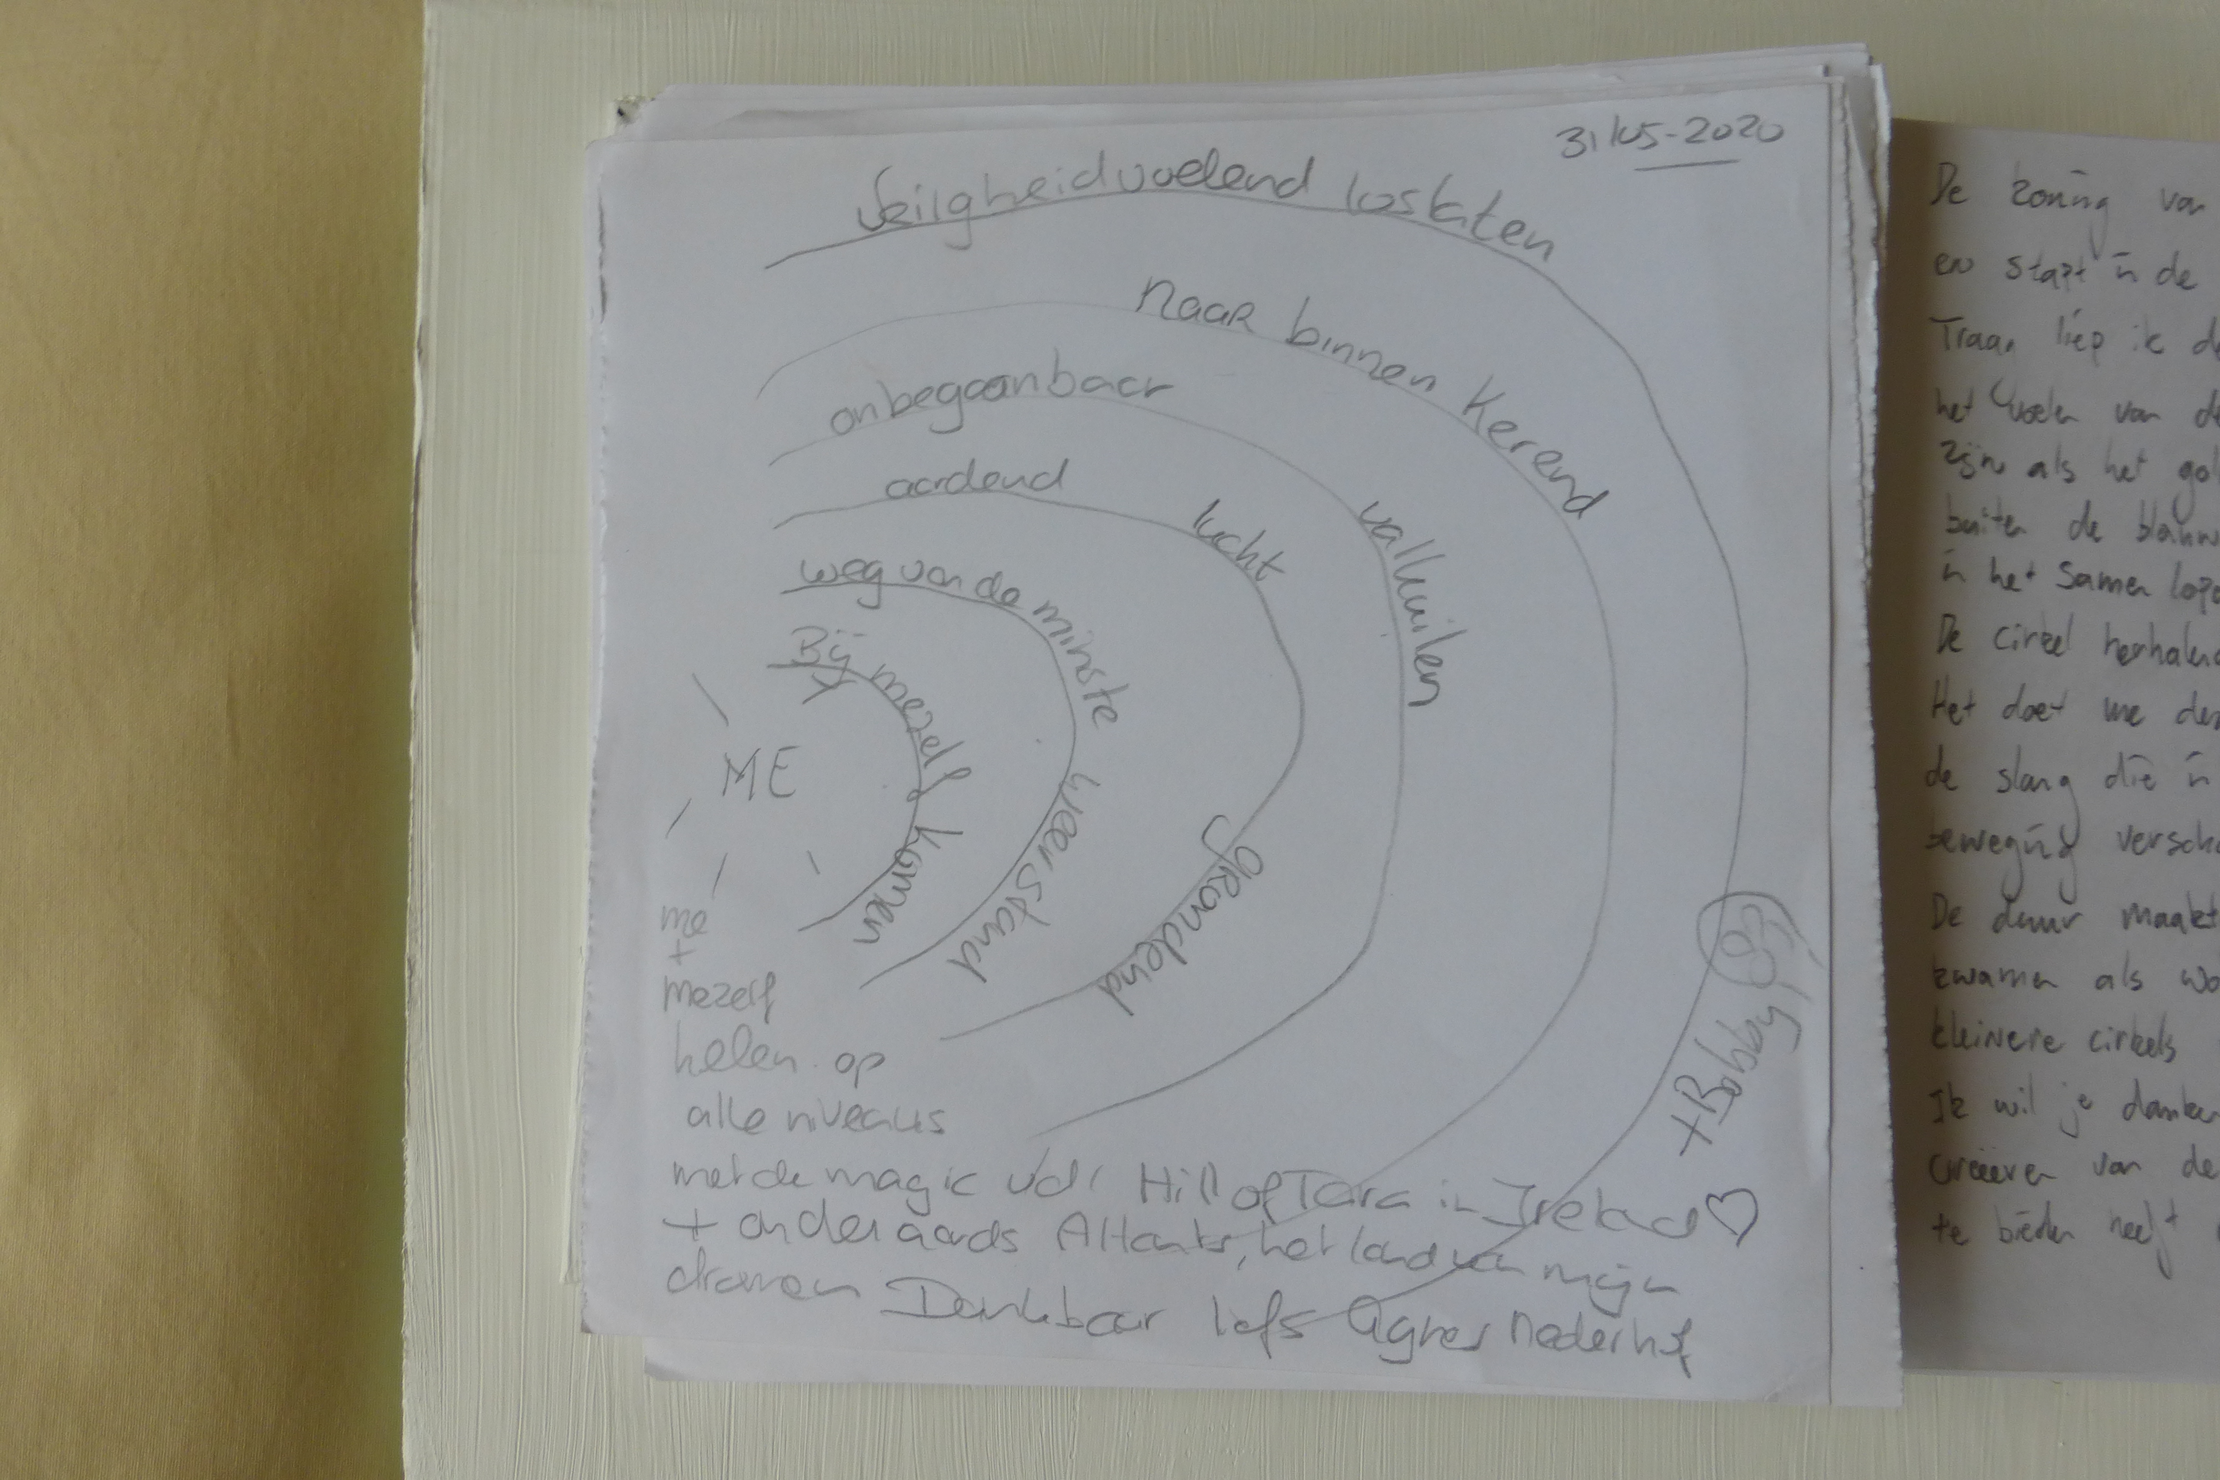 31/05-2020
Veiligheid voelend loslaten
Naar binnen kerend
onbegaanbaar valkuilen
aardend lucht grondend
weg van de minste weerstand
Bij mezelf komen
ME
+ Bobby
me
+
mezelf
helen op
alle niveaus
met de magic vd Hill of Tara in Ireland
+ onderaards Atlantis, het land van mijn
dromen Dankbaar liefs Agnes Nederhof
De koning van
en stapt in de
Traan liep ik
het voelen van
zijn als het
buiten de
in het samen
De cirkel
Het doet me
de slang die in
beweging
De duur maakt
kwamen als
kleinere cirkels
Ik wil je
creëeren van de
te bieden heeft